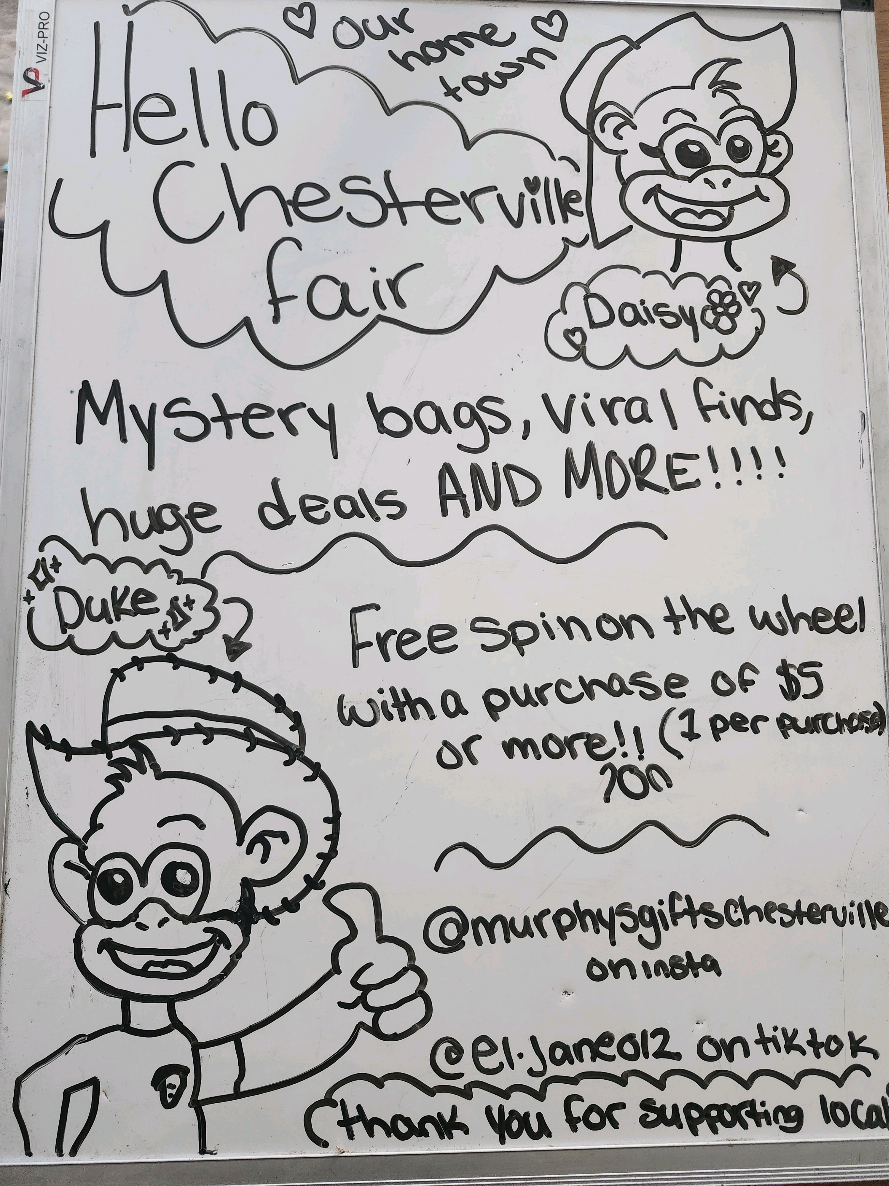 VIZ-PRO
Our
home
town
Hello
Chesterville
fair
Daisy
Mystery bags, viral finds,
huge deals AND MORE!!!!
Duke
Free spin on the wheel
with a purchase of $5
or more!! (1 per purchase)
@murphysgiftschesterville
on insta
@el.jane012 on tiktok
Thank you for supporting local